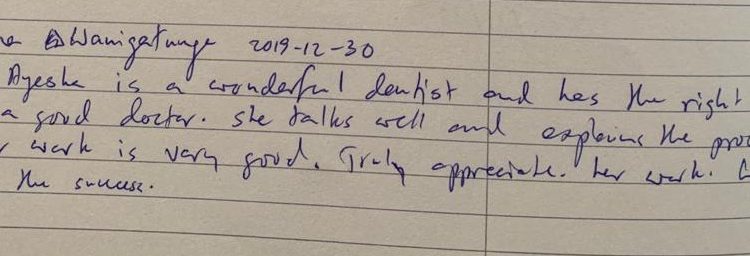 Wanigatunge 2019-12-30
Ayesha is a wonderful dentist and has the right
a good doctor. She talks well and explains the
work is very good. Truly appreciate. her work.
the success.